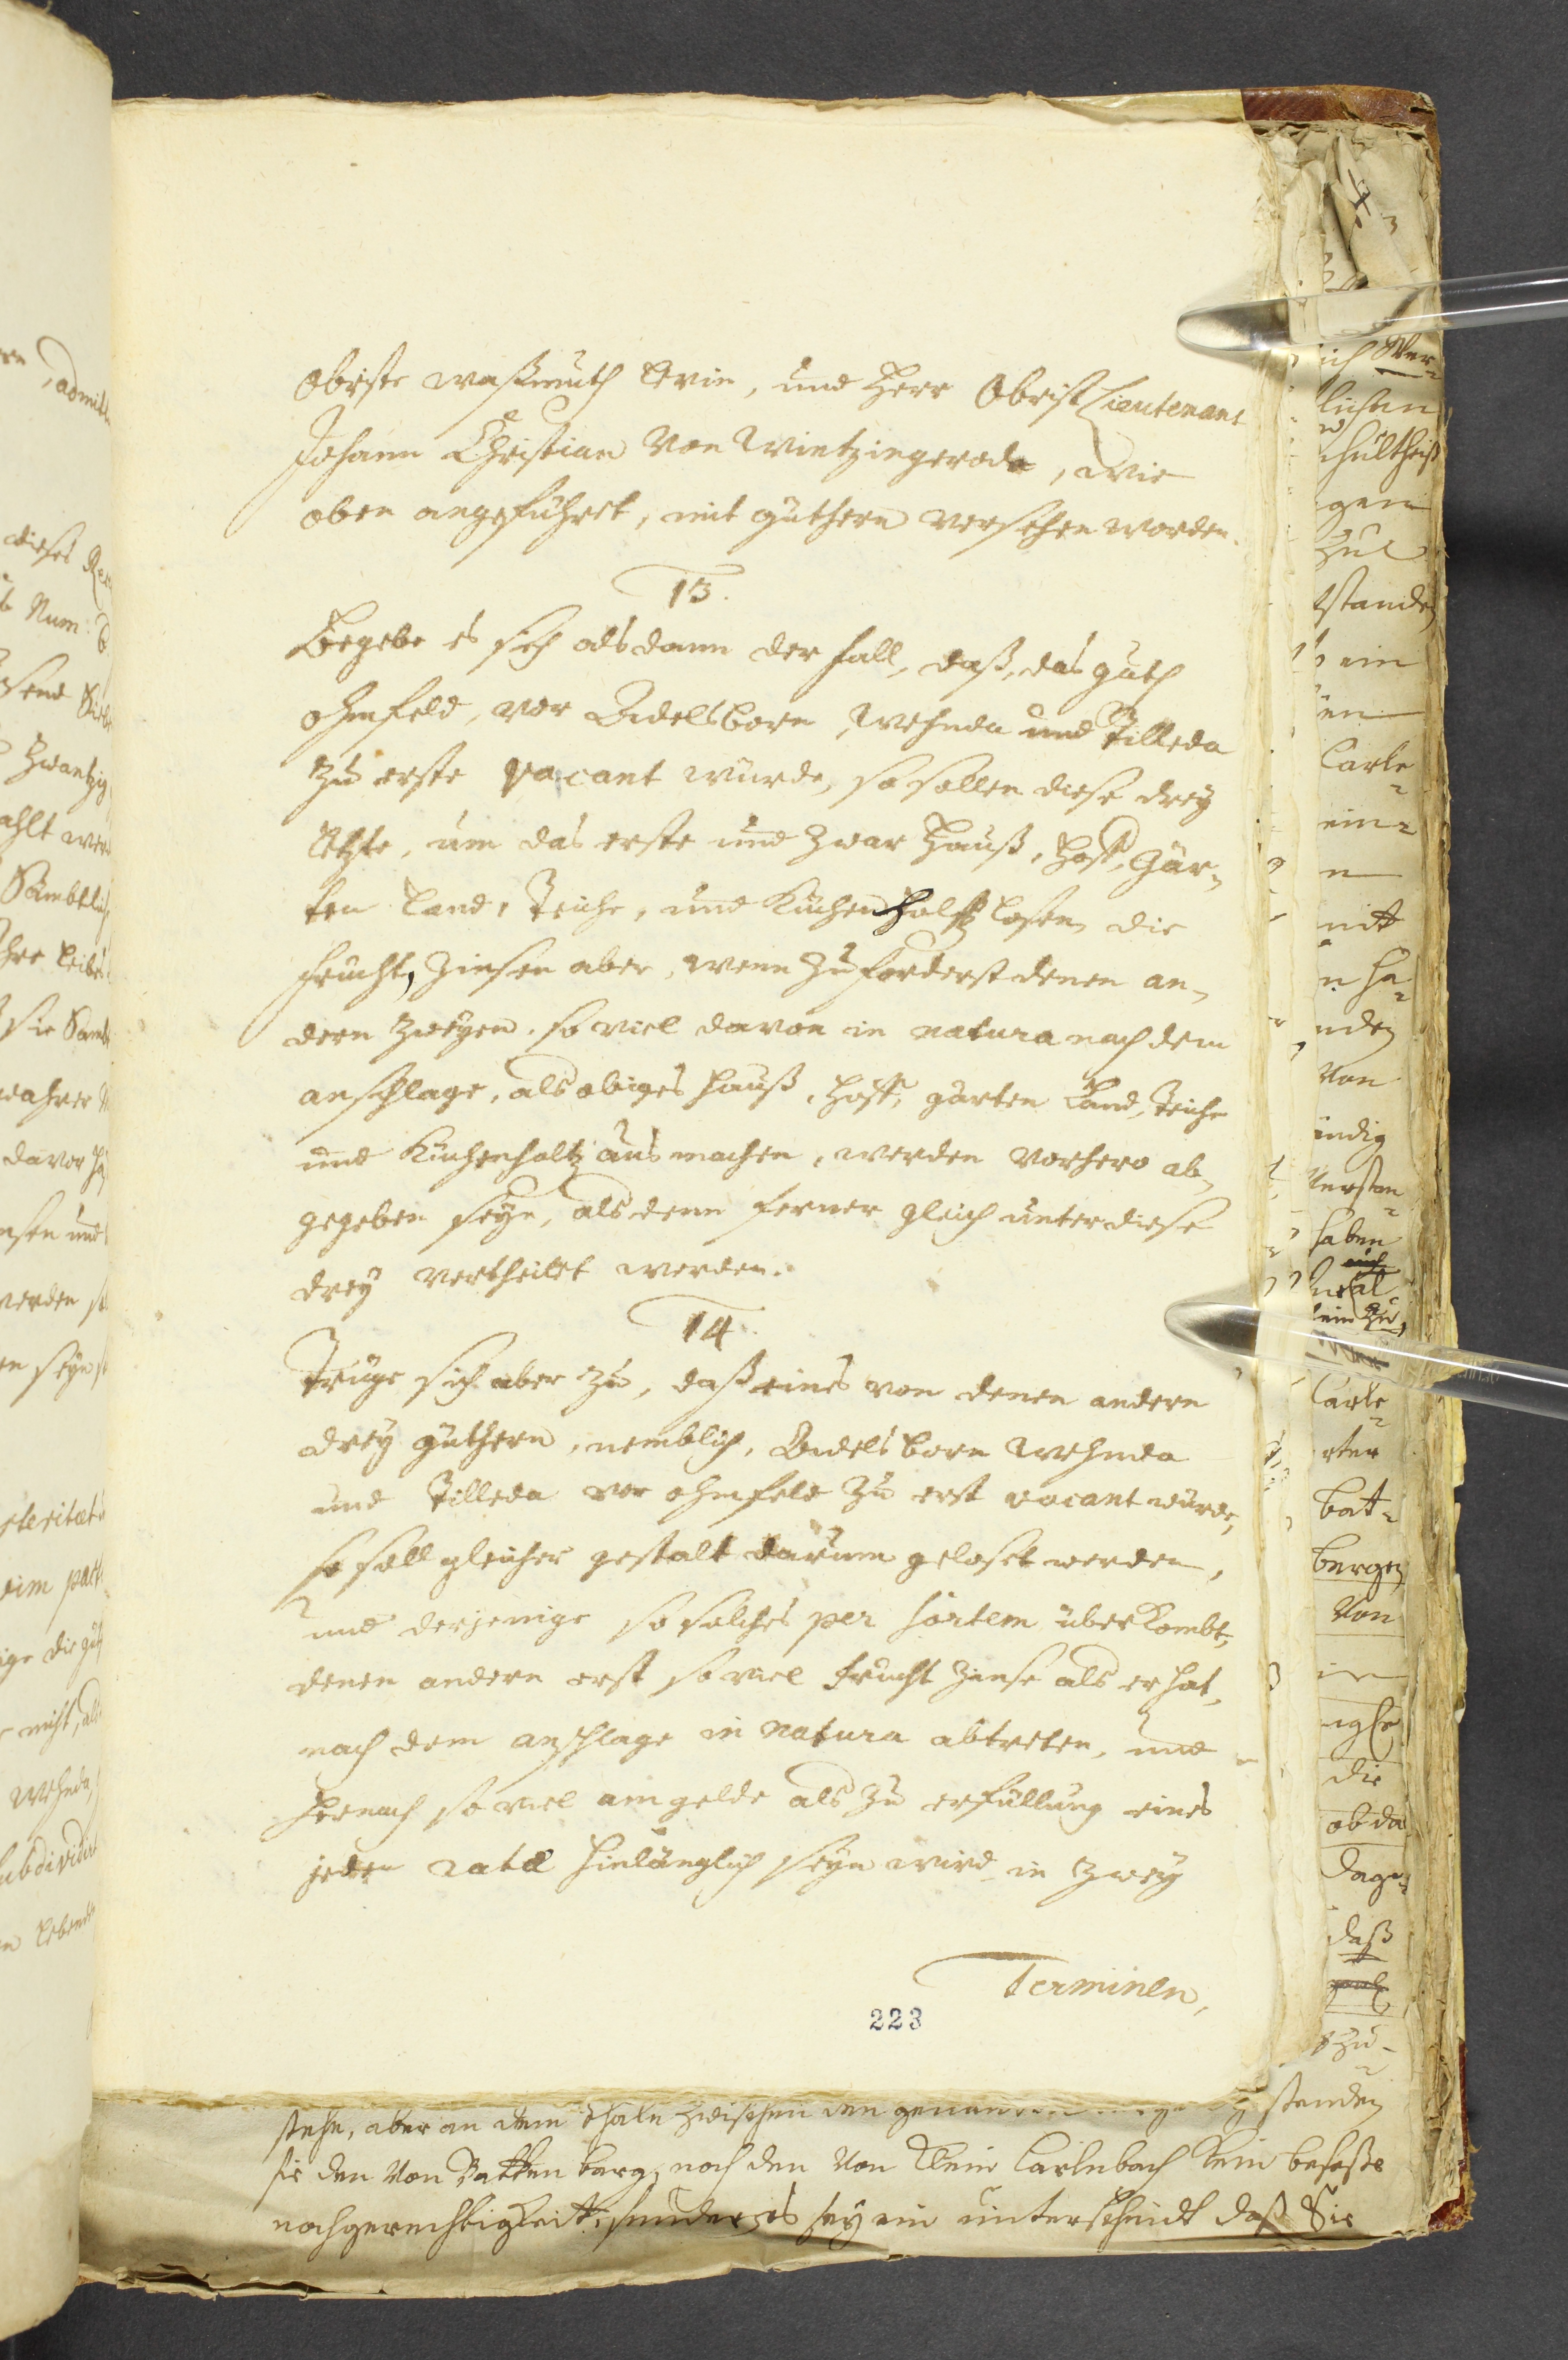 Obriste Waßmuth Levin, und Herr Obrist Lieutenant
Johann Christian Von Wintzingeroda, wie
oben angeführet, mit güthern versehen worden.
13.
Begebe es sich alsdann der fall, daß, das guth
Ohmfeld, vor Adelsborn, Wehnda und Tilleda
zu erste vacant würde, so sollen diese drey
letzte, um das erste und zwar Hauß, Hoff, Gär-
ten Land, Teiche, und Küchenholtz losen, die
frucht, Zinsen aber, wenn zu forderst denen an-
dern zweyen, so viel davon in natura nach dem
anschlage, als obiges Hauß, Hoff, garten Land, Teiche
und Küchenholtz ausmachen, werden vorhero ab-
gegeben seyn, alsdenn ferner gleich unter diese
drey vertheilet werden.
14.
Trüge sich aber zu, daß eines von denen andern
drey güthern, nemblich, Adelsborn Wehnda
und Tilleda vor ohmfeld zu erst vacant würde,
so soll gleicher gestalt darum geloset werden,
und derjenige so solches per sortem überkombt,
denen andern erst so viel frucht Zinse als er hat,
nach dem anschlage in natura abtreten, und
hernach so viel am gelde als zu erfüllung eines
jeden ratæ hinlänglich seyn wird in zwey
Terminen,
223
stehe, aber an dem thale zwischen den standen
sie den Von Batten berg, noch den Von Klein Carlebach kein
nochgerechtigkeit, sondern es sey ein unterscheidt daß Sie